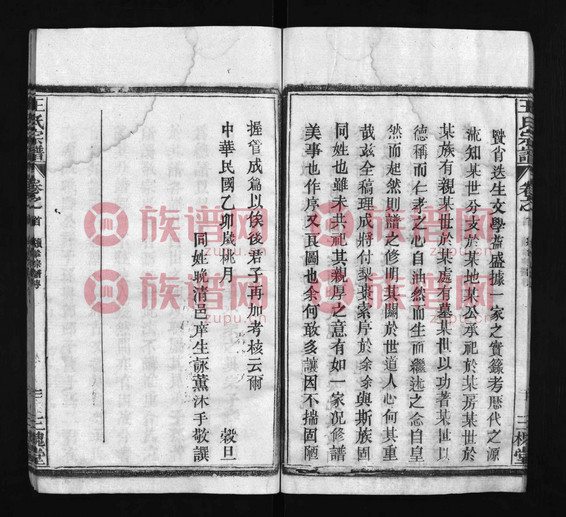 王氏宗譜
卷之首
三槐堂
賢肖迭生文學蓋盛據一家之實錄考歷代之源
流知某世分支於某地某公承祀於某房某世於
某族有親某世於某處有墓某世以功著某世以
德稱而仁孝之心自油然而生而繼述之念自皇
然而起然則譜之修明其關於世道人心何其重
哉茲全稿理成將付梨棗索序於余余與斯族固
同姓也雖未共祀其親厚之意有如一家況修譜
美事也作序又良圖也余何敢多讓因不揣固陋
握管成篇以俟後君子再加考核云爾
中華民國乙卯歲桃月 穀旦
同姓晚清邑庠生詠薰沐手敬譔
王氏宗譜
卷之首
三槐堂
族谱网
zupu.cn
族谱网
zupu.cn
族谱网
zupu.cn
族谱网
zupu.cn
族谱网
zupu.cn
族谱网
zupu.cn